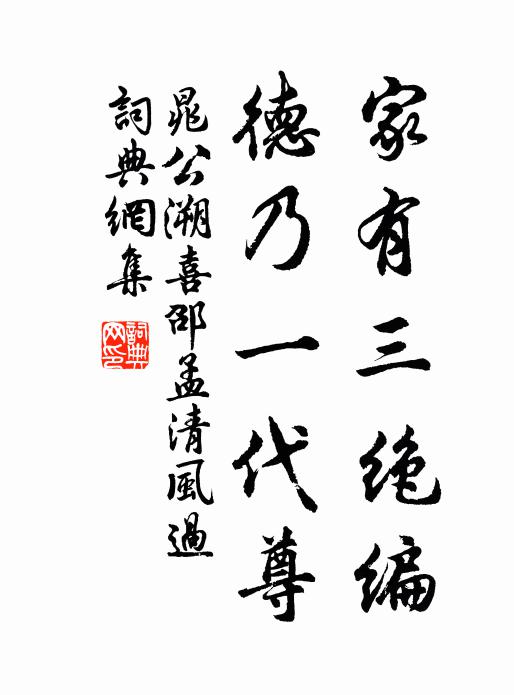 家有三绝编
德乃一代尊
晁公溯喜邵孟清風過
詞典網集
詞典網印